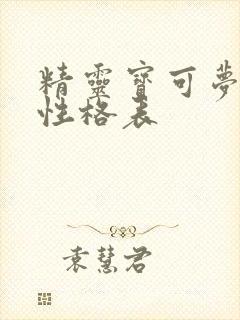 精靈寶可夢
性格表
袁慧君